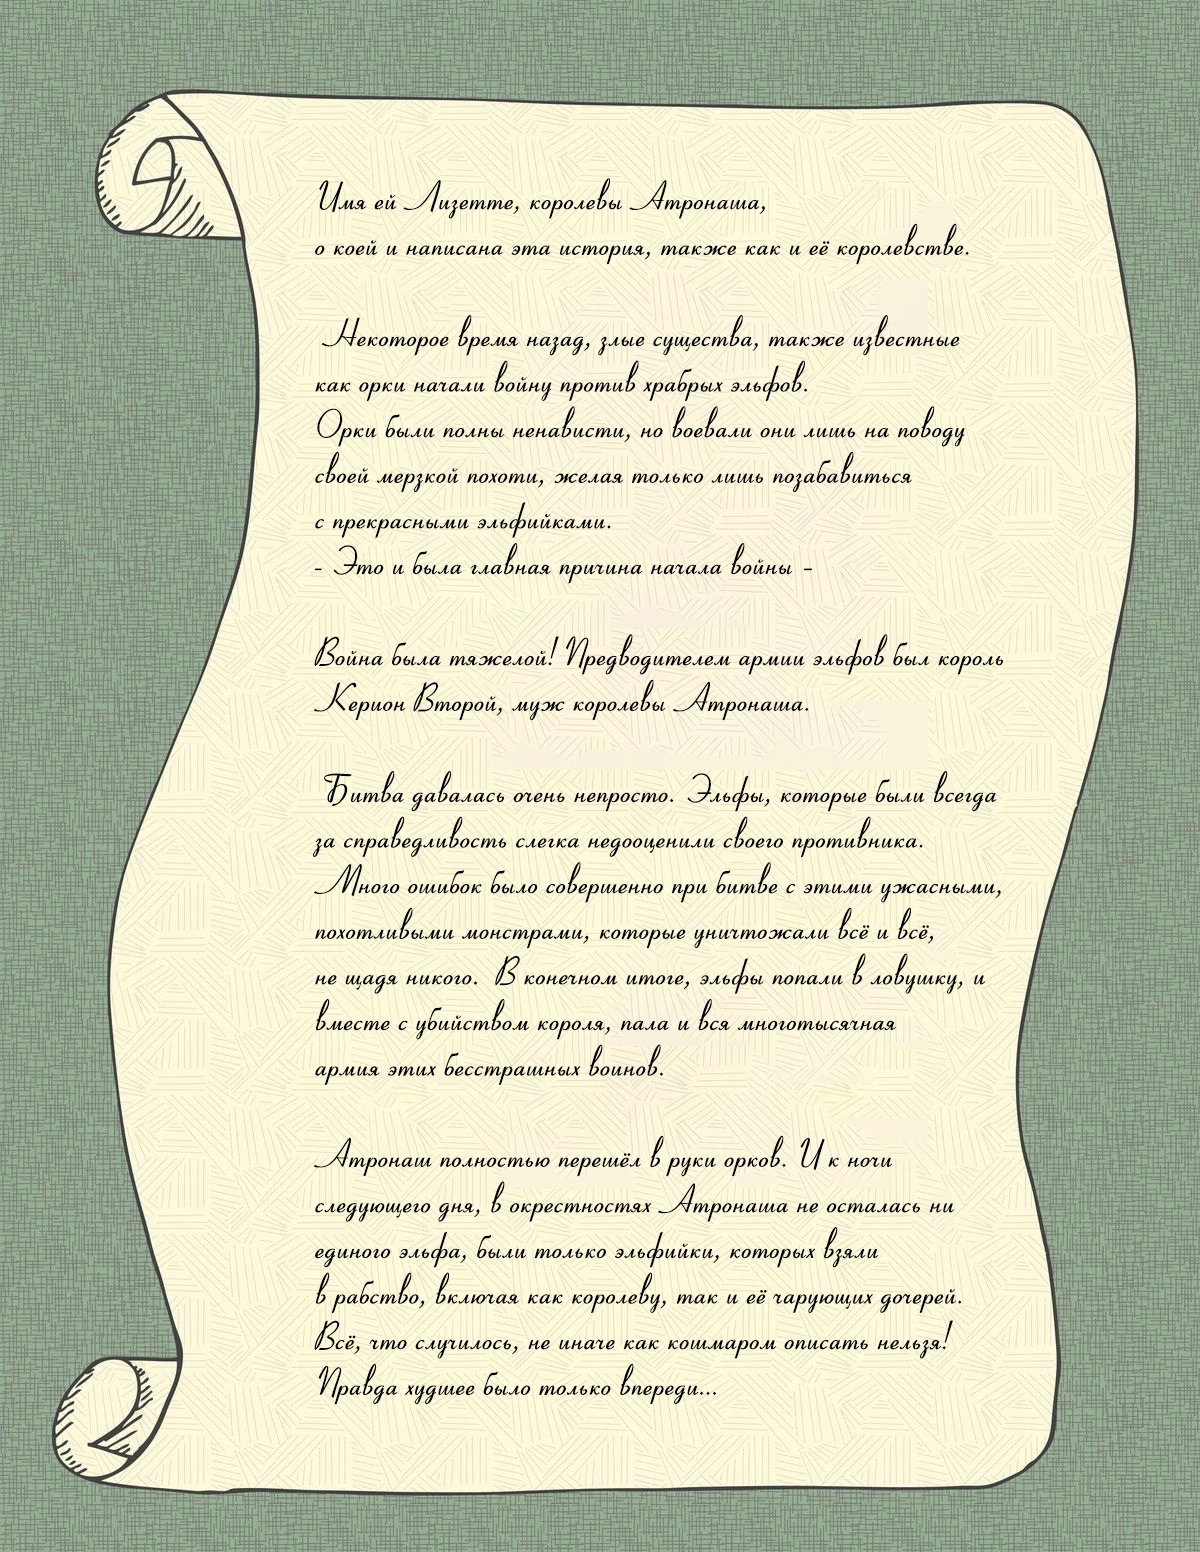 Имя ей Лизетте, королевы Атронаша,
о коей и написана эта история, также как и её королевстве.
Некоторое время назад, злые существа, также известные
как орки начали войну против храбрых эльфов.
Орки были полны ненависти, но воевали они лишь на поводу
своей мерзкой похоти, желая только лишь позабавиться
с прекрасными эльфийками.
- Это и была главная причина начала войны -
Война была тяжелой! Предводителем армии эльфов был король
Керион Второй, муж королевы Атронаша.
Битва давалась очень непросто. Эльфы, которые были всегда
за справедливость слегка недооценили своего противника.
Много ошибок было совершенно при битве с этими ужасными,
похотливыми монстрами, которые уничтожали всё и всё,
не щадя никого. В конечном итоге, эльфы попали в ловушку, и
вместе с убийством короля, пала и вся многотысячная
армия этих бесстрашных воинов.
Атронаш полностью перешёл в руки орков. И к ночи
следующего дня, в окрестностях Атронаша не осталась ни
единого эльфа, были только эльфийки, которых взяли
в рабство, включая как королеву, так и её чарующих дочерей.
Всё, что случилось, не иначе как кошмаром описать нельзя!
Правда худшее было только впереди...